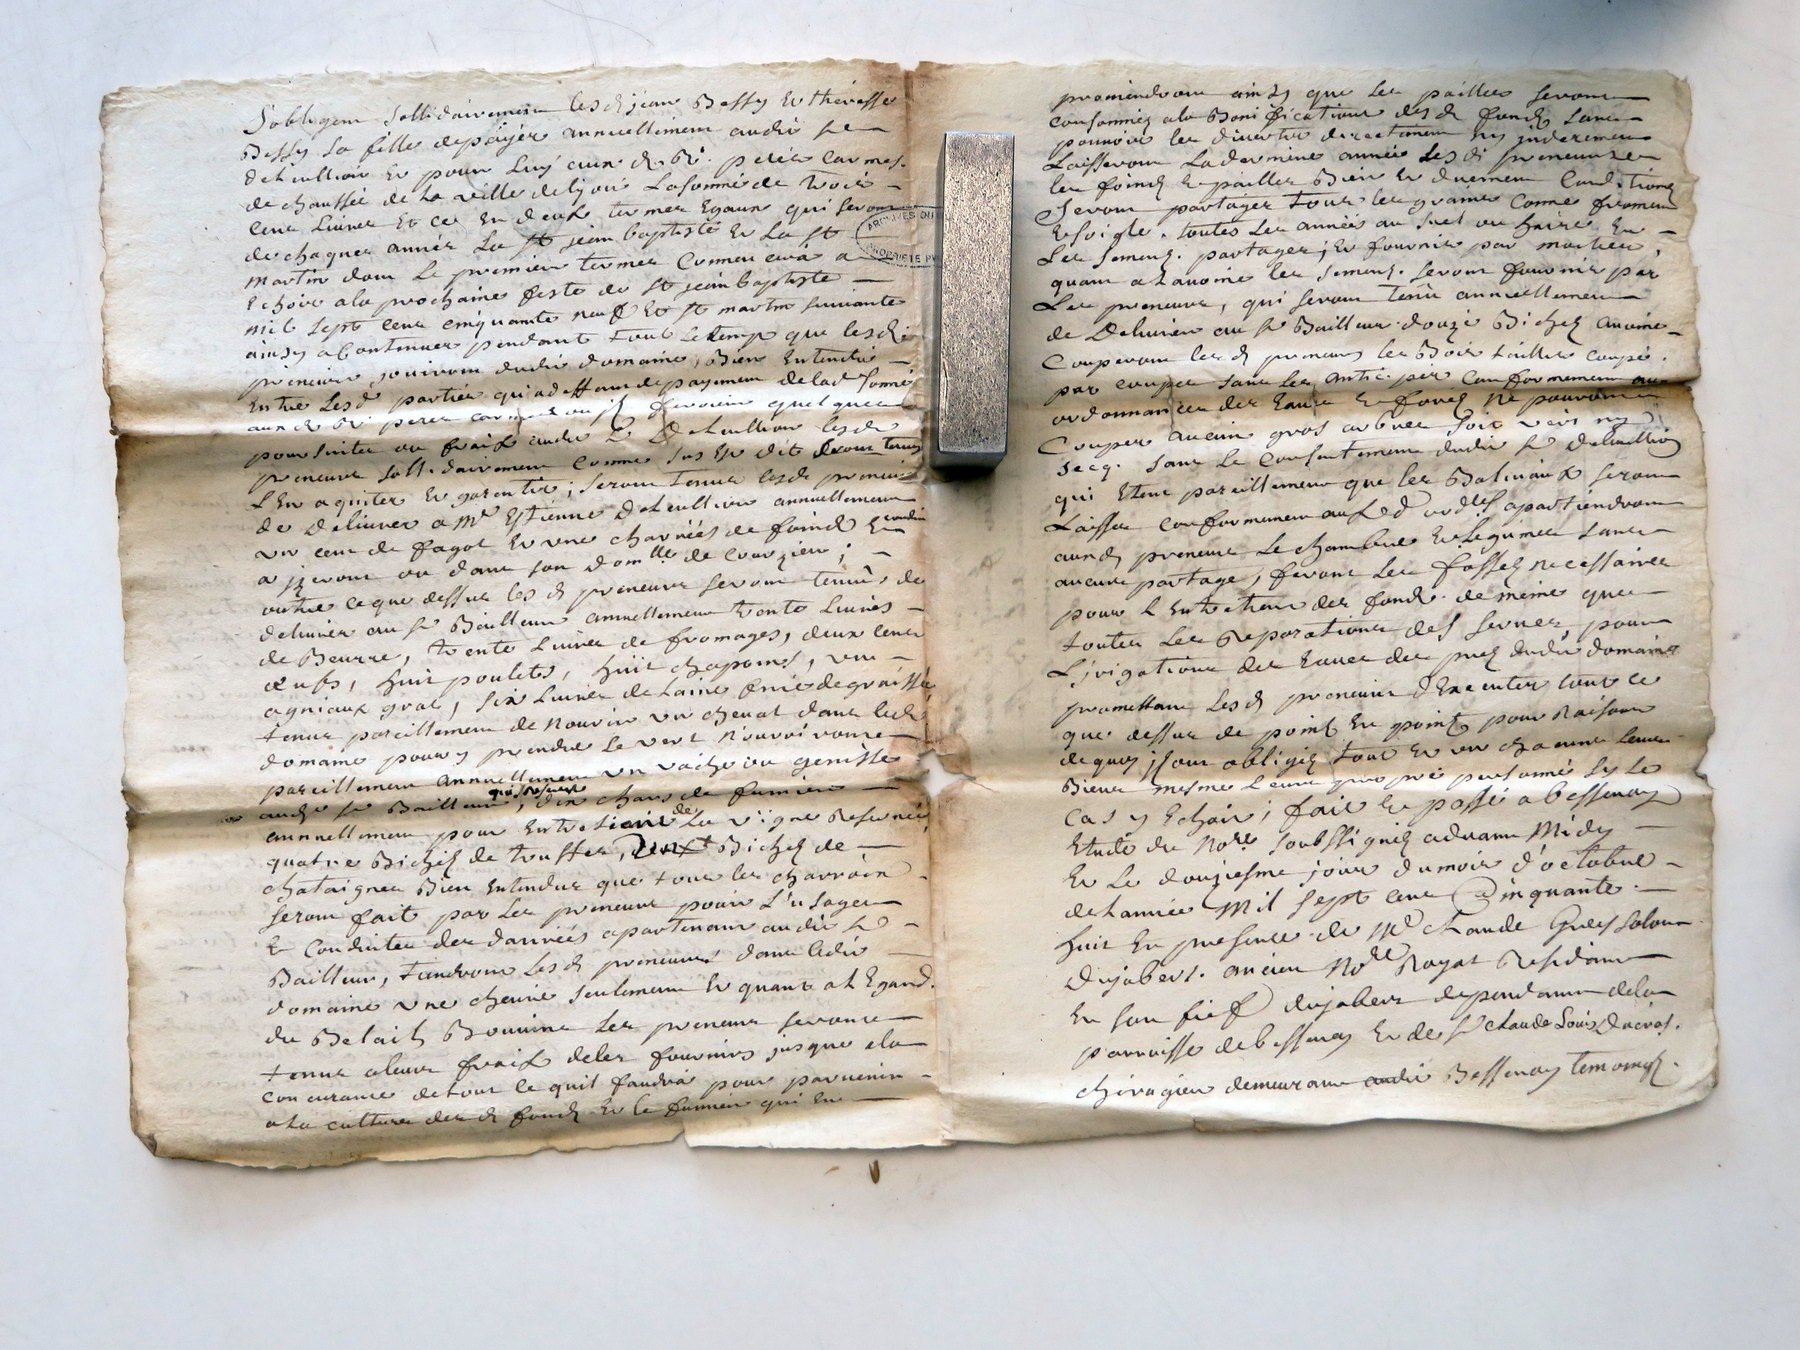 Sobligent sollidairement lesd jean Bessy Et therresse
Bessy sa fille de payer annuellement audit sr
Delhullion Et pour Luy aux d Rd. peres Carmes
de chaussée de La ville de lyon La somme de trois
cent Livres Et ce En deux termes Egaux qui seront
de chaques année La St jean baptiste Et La St
Martin dont Le premier termes Commencera a
Echoir a la prochaine feste de St jean Baptiste
mil sept cent cinquante neuf Et St martin suivante
ainsy a Continuer pendant tout Le temp que lesd
preneurs jouiront dudit domaine, Bien Entendu
Entre Lesd parties qui a deffaut de payement de lad somme
aux d Rd peres carmes ou il feroient quelques
poursuites ou fraix audit Sr Delhullion lesd
preneurs sollidairement comme sus Est dit seront tenus
L'En aquiter Et garentir; seront tenus lesd preneurs
de Delivrer a Mr Estienne Delhullion annuellement
un cent de fagot Et une charrées de foind Rendu
a jzeront ou dans son domlle de Courzieu;
outre ce que dessus les d preneurs seront tenus de
delivrer au sr Bailleur annuellement trente Livres
de Beurre, trente Livres de fromages, deux cent
œufs, huit poulets, huit chapons, un
agniaux gras, six Livres de Laine
tenus pareillement de Nourir un cheval dans ledt
domaine pour y prendre Le vert Nouriront
pareillement annuellement un vache ou genisse
audit sr Bailleur, dix chars de fumier
annuellement pour Entretient de La vigne Reservée
quatre Bichez de truffes, deux Bichez de
chataignes Bien Entendus que tous les charrois
seront fait par Les preneurs pour L'usage
Et Conduites des danrées apartenant audit sr
Bailleur, tiendront Les d preneurs dans ledit
domaine une chevre seulement Et quant a L Egard
du Betail Bovine Les preneurs seront
tenus a leurs fraix de les fournirs jusque a la
concurance de tout ce quil faudra pour parvenir
a La culture des d fonds Et le fumier qui En
proviendront ainsy que Les pailles seront
consommez a la Bonification des d fonds sans
pouvoir les divertir directement ny indirement
Laisseront La derniere année Les d preneurs
les foinds Et pailles Bien Et duement Conditionez
Seront partages tous les grains Comme froment
Et soigle. toutes Les années au suel ou haire Et
Les semens. partages; Et fournir par moitier,
quant a Lavoine les semens. seront fournis par
Les preneurs, qui seront tenu annuellement
de Delivrer au sr Bailleur douze Bichez avoine
Couperont les d preneurs les Bois taillis coupé
par coupe sans Les anticiper Conformement au
ordonnances des Eaux Et forest Ne pouront
Couper aucun gros arbres soit vers ny
Secq. sans Le Consentement dudit sr Delhullion
qui Etent pareillement que les Baliveaux seront
Laisser conformement aux d ords apartiendront
aux d preneurs Le chambre Et Legumes sans
aucune partage, feront Les fossez necessaires
pour L Entretien des fonds. de même que
toutes Les Reparations des serves pour
L'jrigations des Eaux des prez dudit domaine
promettant Les d preneurs d Executer tout ce
que dessus de point En point pour Raison
de quoy jl sont obligez tout Et un chacuns leurs
Biens mesme Leurs propre personne sy Le
cas y Echoit; fait Et passé a bessenay
Etude du Nore Soubssignez advant Midy
Et Le douziesme jour du mois d'octobre
de Lannée Mil sept cent Cinquante
huit En presence de Mr Claude
Dujabert ancien Nore Royal Residant
En son fief dujabert dependant de la
parroisse de bessenay Et de Sr Claude Louis Ducros
chirugien demeurant audit Bessenay temoins.
ARCHIVES DU
PROPRIETE P